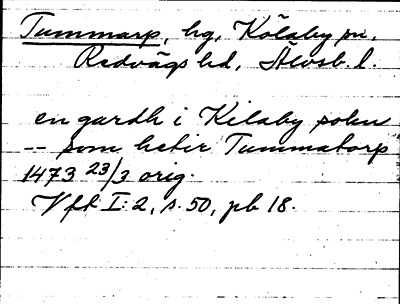 Tummarp, hg, Kölaby sn,
Redvägs hd, Älvsb. l.
en gardh i Kilaby sokn
-- som hetir Tummatorp
1473 23/3 orig.
Vft I:2, s. 50, pb 18.